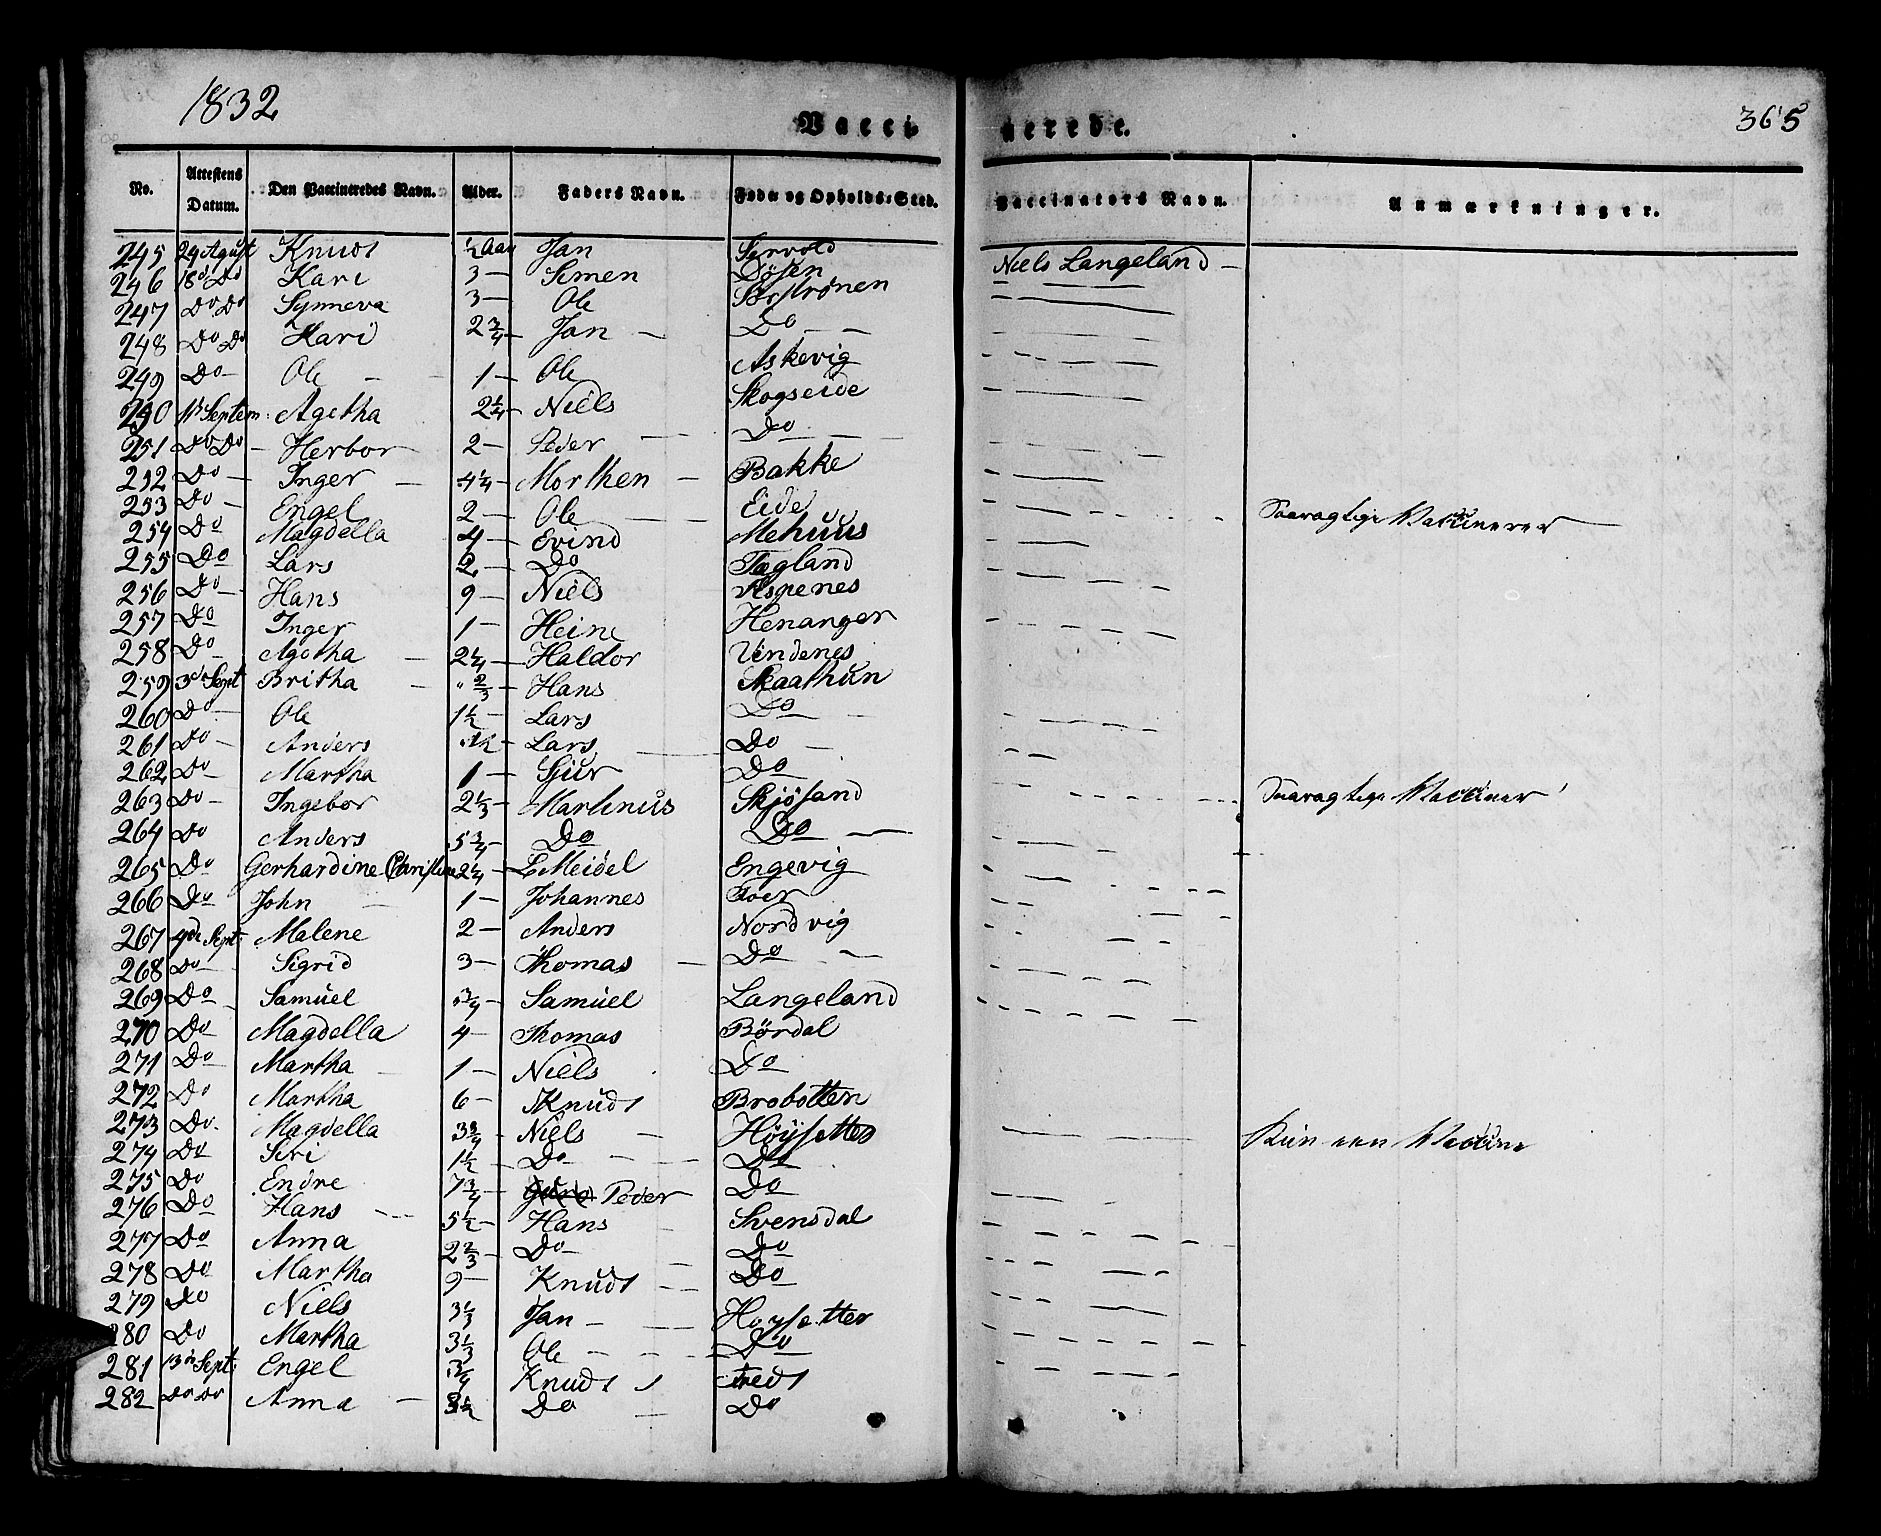 1832
Vacci
nerede.
365
No. Attestens Datum. Den Vaccineredes Navn. Alder. Faders Navn. Føde og Opholds-Sted. Vaccinators Navn. Anmærkninger.
245 29 Agust Knudt ½ Aar Jan Niels Langeland
246 18d Do Kari 3 Simen Døsen
247 Do Do Synneva 3 Ole
248 Do Do Kari 2¾ Jan Do
249 Do Ole 1 Ole Askevig
250 Septem: Agetha 2¼ Niels Skogseide
251 Do Do Herbor 2 Peder Do
252 Do Inger 4¼ Morthen Bakke
253 Do Engel 2 Ole Eide
254 Do Magdella 4 Evind Mehuus
255 Do Lars 2 Do Tøgland
256 Do Hans 9 Niels Aspenes
257 Do Inger 1 Heine Henanger
258 Do Agotha 2¼ Haldor Vindenes
259 3d Sept Britha ⅔ Hans Skaathun
260 Do Ole 1½ Lars Do
261 Do Anders Lars Do
262 Do Martha 1 Sjur Do
263 Do Ingebor 2⅓ Martinus Skjøsand
264 Do Anders 5¾ Do Do
265 Do Gerhardine Christine 2¼ L Meidel Engevig
266 Do John 1 Johannes
267 4de Sept: Malene 2 Anders Nordvig
268 Do Sigrid 3 Thomas Do
269 Do Samuel ¾ Samuel Langeland
270 Do Magdella 4 Thomas Børdal
271 Do Martha 1 Niels Do
272 Do Martha 6 Knudt Brobotten
273 Do Magdella 3¾ Niels Høysetter Kun een Vaccine
274 Do Siri 1½ Do Do
275 Do Endre 7¾ Peder Do
276 Do Hans 5½ Hans Svensdal
277 Do Anna 2⅔ Do Do
278 Do Martha 9 Knudt Do
279 Do Niels 3⅓ Jan Høysætter
280 Do Martha 3⅓ Ole Do
281 13de Sept: Engel ¾ Knudt
282 Do Do Anna 3½ Do Do